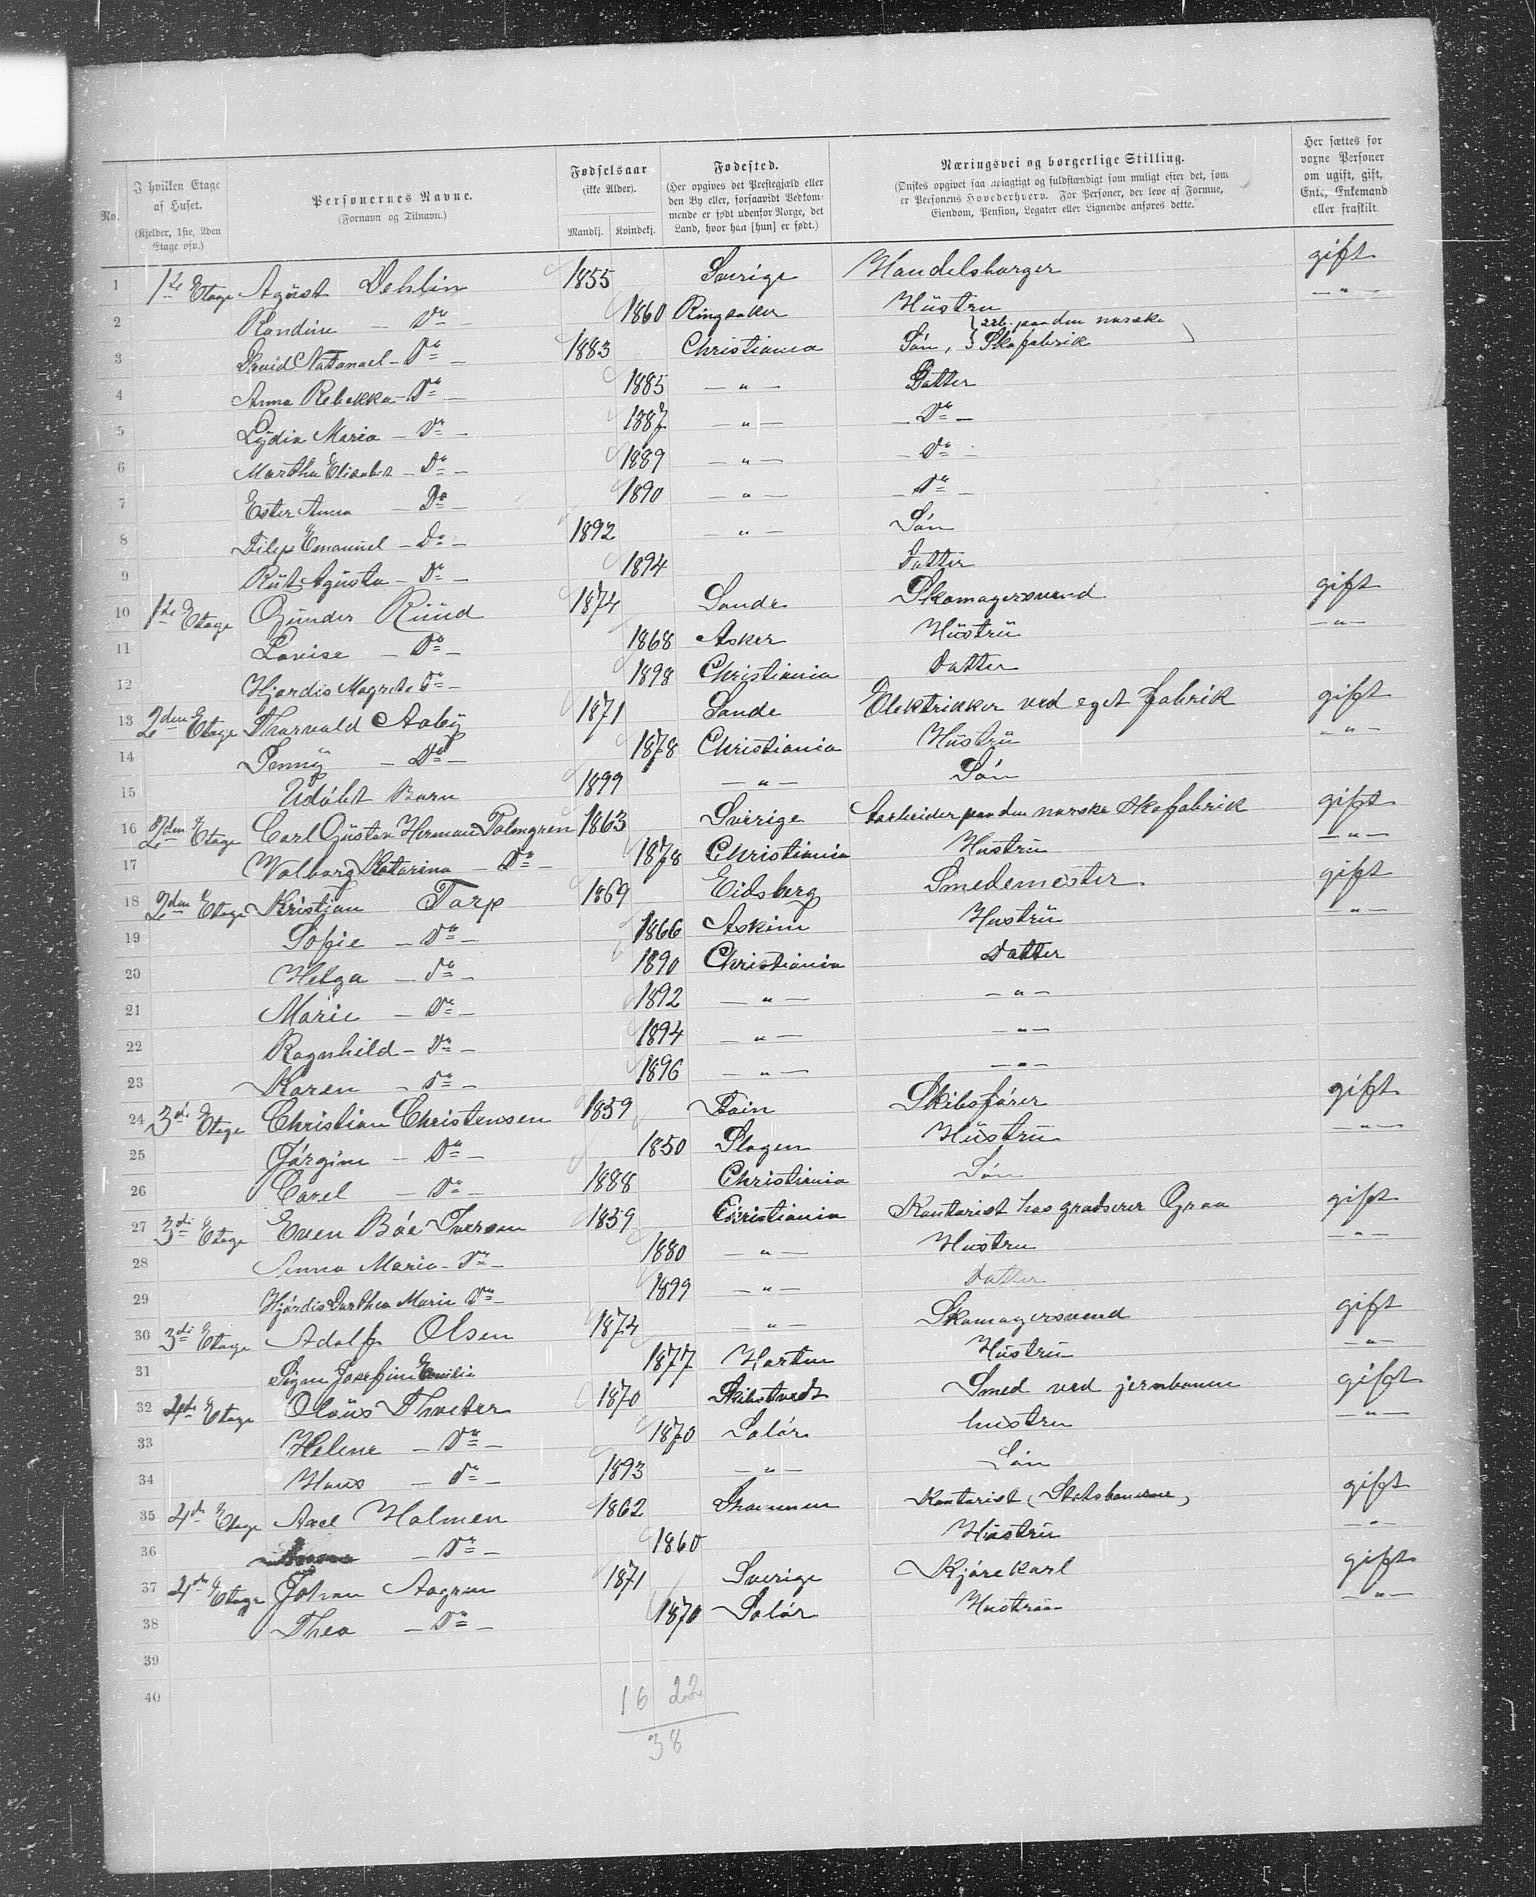 No.
I hvilken Etage af Huset. (Kjelder, 1ste, 2den Etage osv.)
Personernes Navne. (Fornavn og Tilnavn.)
Fødselsaar (ikke Alder). Mandkj. Kvindekj.
Fødested. (Her opgives det Prestegjæld eller den By eller, forsaavidt Vedkommende er født udenfor Norge, det Land, hvor han [hun] er født.)
Næringsvei og borgerlige Stilling. (Ønskes opgivet saa nøiagtigt og fuldstændigt som muligt efter det, som er Personens Hovederhverv. For Personer, der leve af Formue, Eiendom, Pension, Legater eller Lignende anføres dette.)
Her sættes for voxne Personer om ugift, gift, Enke, Enkemand eller fraskilt.
1 1ste Etage Agüst Dehlin 1855 Sverige Handelsborger gift
2 Randine — Do — 1860 Ringsaker Hüstru — " —
3 David Natanael — Do — 1883 Christiania Sön, arb. paa den norske Skofabrik
4 Anna Rebekka — Do — 1885 — " — Datter
5 Lydia Maria — Do — 1887 — " — — Do —
6 Martha Elisabet — Do — 1889 — " — — Do —
7 Ester Anna — Do — 1890 — " — — Do —
8 Filip Emanuel — Do — 1892 — " — Sön
9 Rüt Agüsta — Do — 1894 Datter
10 1ste Etage Günder Rüüd 1874 Sande Skomagersvend gift
11 Lovise — Do — 1868 Asker Hüstrü — " —
12 Hjørdis Magrete Do — 1898 Christiania Datter
13 2den Etage Thorvald Aaby 1871 Sande Elektrikker ved eget fabrik gift
14 Jenny — Do — 1878 Christiania Hüstrü — " —
15 Udöbt Barn 1899 — " — Sön
16 2den Etage Carl Güstav Herman Palmgren 1863 Sverige arbeider paa den norske skofabrik gift
17 Valborg Katarina — Do — 1878 Christiania Hustrü — " —
18 2den Etage Kristian Torp 1869 Eidsberg Smedemester. gift
19 Sofie — Do — 1866 Askim Hustrü — " —
20 Helga — Do — 1890 Christiania Datter
21 Marie — Do — 1892 — " — — " —
22 Ragnhild — Do — 1894 — " — — " —
23 Karen — Do — 1896 — " — — " —
24 3die Etage Christian Christensen 1859 Skibsfører gift
25 Jörgine — Do — 1850 Slagen Hüstru — " —
26 Carel — Do — 1888 Christiania Sön
27 3die Etage Even Böe Iversen 1859 Christiania Kontorist hos Graa gift
28 Anna Maria — Do — 1880 — " — Hustru — " —
29 Hjördis Dorthea Marie Do — 1899 — " — Datter
30 3die Etage Adolf Olsen 1874 — " — Skomagersvend gift
31 Signe Josefine Emilie 1877 Horten Hüstrü — " —
32 4de Etage Olaüs Thveter 1870 Skibstvedt Smed ved jernbanen gift
33 Helene — Do — 1870 Solör hustru — " —
34 Hans — Do — 1893 — " — Sön
35 4de Etage Axel Holmen 1862 Drammen Kontorist (Statsbanerne) gift
36 — Do — 1860 Hüstrü — " —
37 4de Etage Johan Aagren 1871 Sverige Kjörekarl gift
38 Thea — Do — 1870 Solör Hustru — " —
39
40
16 22
38